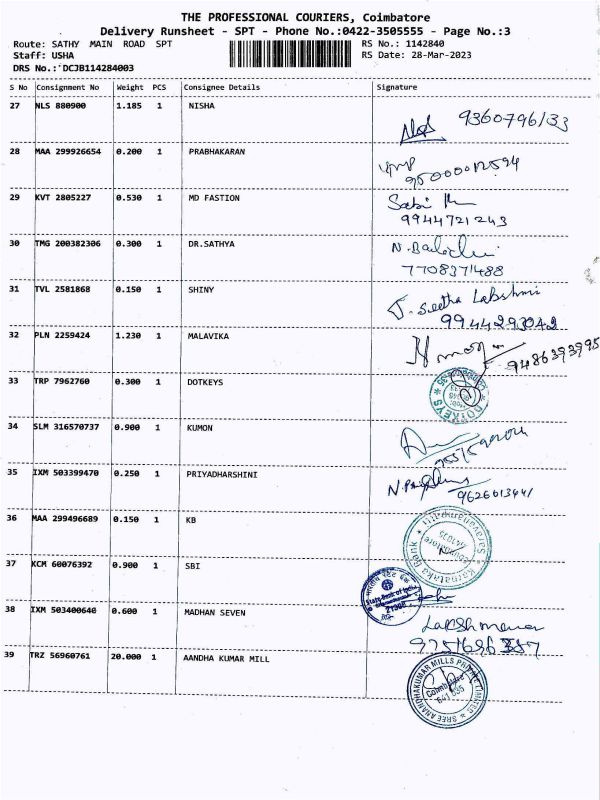 THE PROFESSIONAL COURIERS, Coimbatore
Delivery Runsheet - SPT - Phone No.:0422-3505555 - Page No.:3
Route: SATHY MAIN ROAD SPT RS No.: 1142840
Staff: USHA RS Date: 28-Mar-2023
DRS No.: DCJB114284003
S No Consignment No Weight PCS Consignee Details Signature
27 NLS 880900 1.185 1 NISHA 9360796133
28 MAA 299926654 0.200 1 PRABHAKARAN
29 KVT 2805227 0.530 1 MD FASTION
9944721243
30 TMG 200382306 0.300 1 DR.SATHYA
7708371488
31 TVL 2581868 0.150 1 SHINY J. Seetha Lakshmi
9944293042
32 PLN 2259424 1.230 1 MALAVIKA 9486393995
33 TRP 7962760 0.300 1 DOTKEYS
DOTKEYS
34 SLM 316570737 0.900 1 KUMON
35 IXM 503399470 0.250 1 PRIYADHARSHINI
9626013441
36 MAA 299496689 0.150 1 KB
Karnataka Bank Saravanampatti
Coimbatore
641035
37 KCM 60076392 0.900 1 SBI
State Bank of India
21908
38 IXM 503400640 0.600 1 MADHAN SEVEN
39 TRZ 56960761 20.000 1 AANDHA KUMAR MILL
SREE ANANDHAKUMAR MILLS PRIVATE LIMITED
Coimbatore
641 035